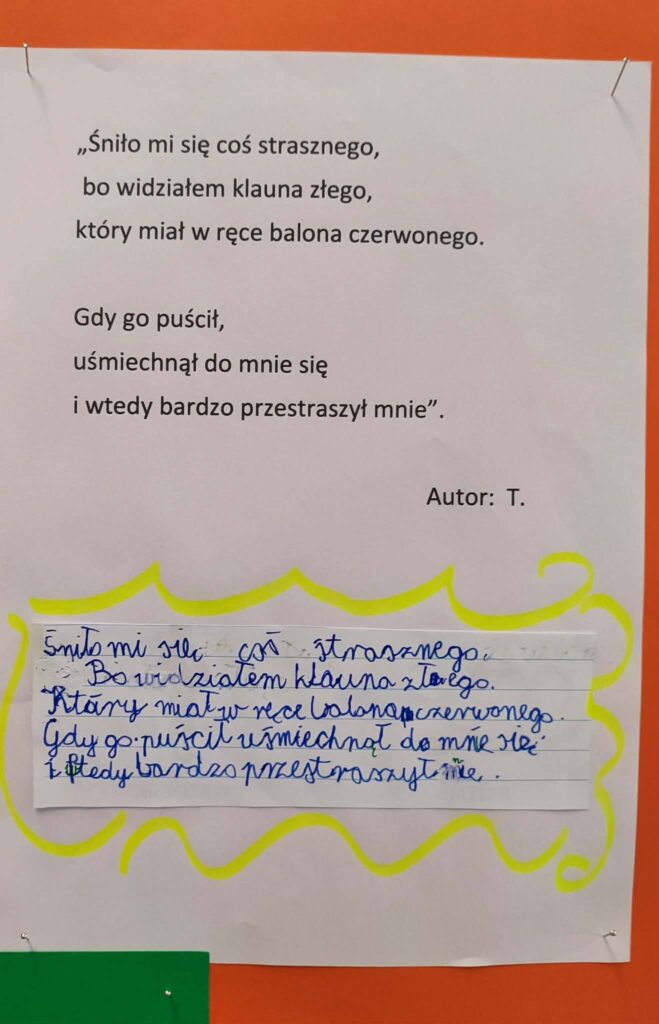 „Śniło mi się coś strasznego,
bo widziałem klauna złego,
który miał w ręce balona czerwonego.
Gdy go puścił,
uśmiechnął do mnie się
i wtedy bardzo przestraszył mnie”.
Autor: T.
Śniło mi się coś strasznego.
Bo widziałem klauna złego.
Który miał w ręce balona czerwonego.
Gdy go puścił uśmiechnął do mnie się
i wtedy bardzo przestraszył mnie.